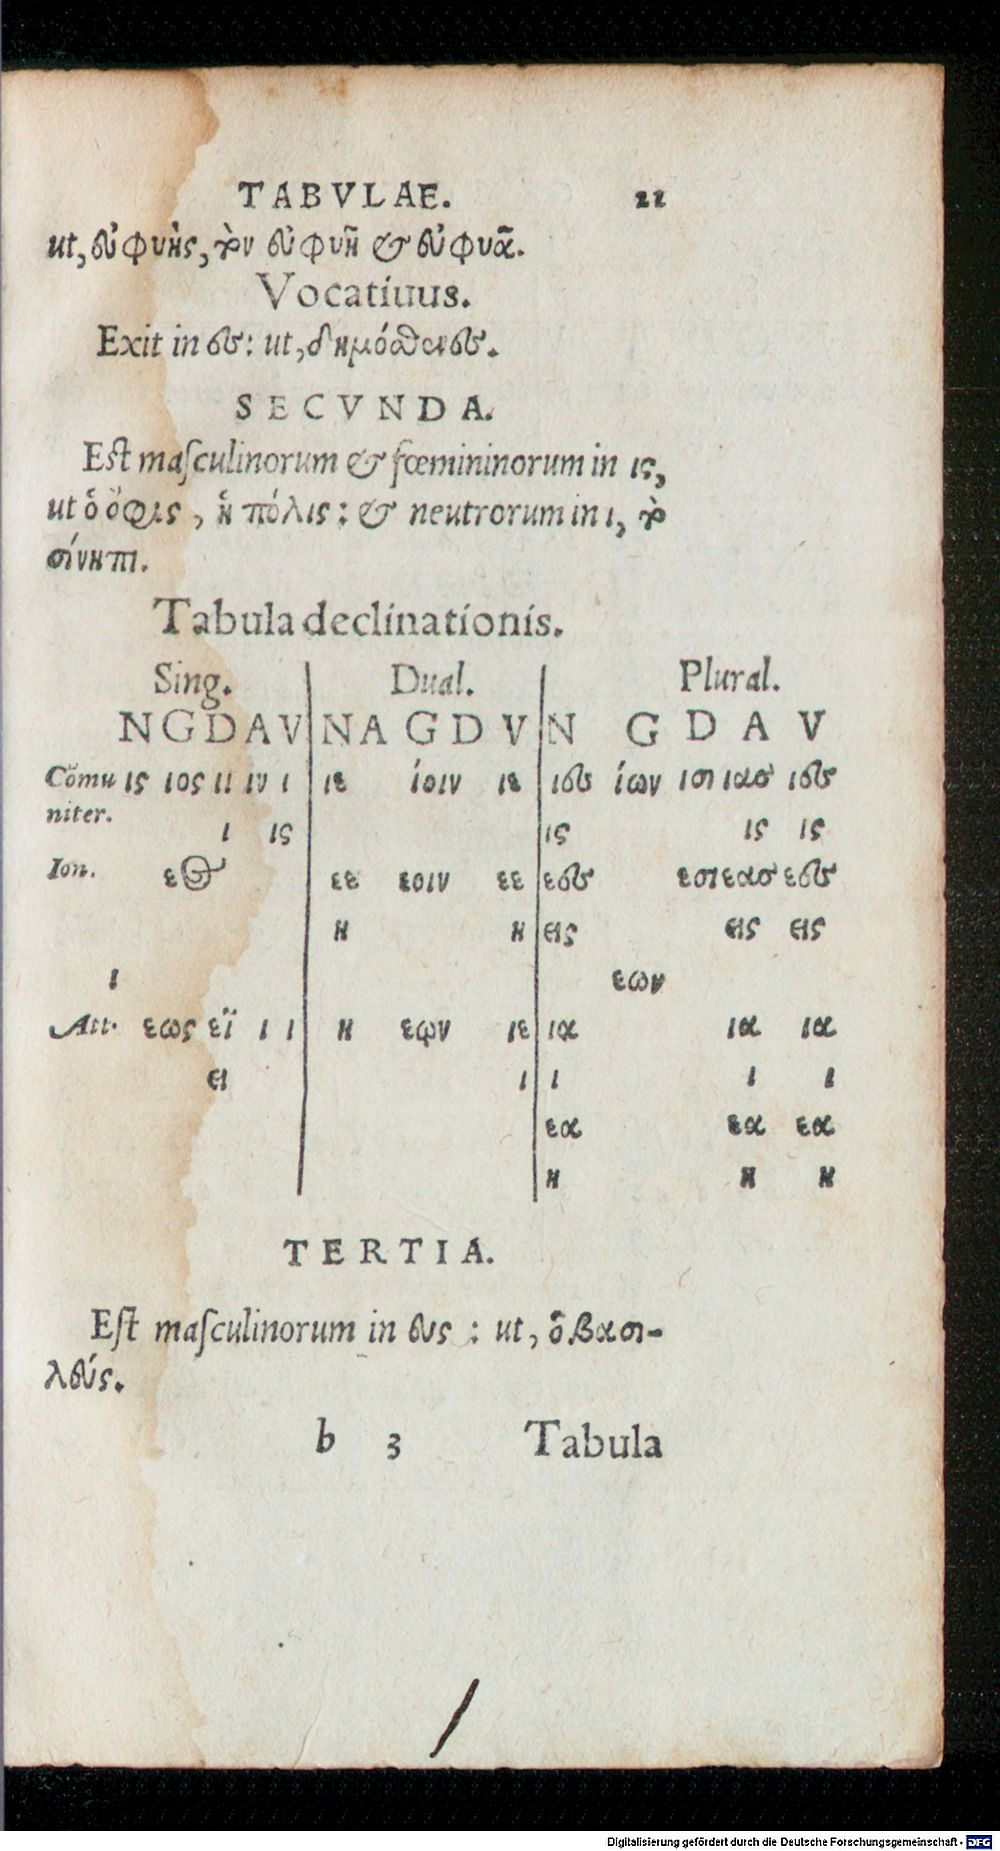 TABVLAE. 22
ut, εὐφυὴς, τὸν εὐφυῆ & εὐφυᾶ.
Vocatiuus.
Exit in ες: ut, δημόσθενες.
SECVNDA.
Est masculinorum & fœmininorum in ις,
ut ὁ ὄφις, ἡ πόλις: & neutrorum in ι, τὸ
σίνηπι.
Tabula declinationis.
Sing. Dual. Plural.
N G D A V N A G D V N G D A V
Cōmu ις ιος ιι ιν ι ιε ίοιν ιε ιες ίων ισι ιας ιες
niter.
ι ις ις ις ις
Ion. εος εε εοιν εε εες εσι εας εες
η η εις εις εις
ι εων
Att. εως εϊ ι ι η εῳν ιε ια ια ια
ει ι ι ι ι
εα εα εα
η η η
TERTIA.
Est masculinorum in ευς: ut, ὁ βασι-
λεύς.
b 3 Tabula
Digitalisierung gefördert durch die Deutsche Forschungsgemeinschaft - DFG